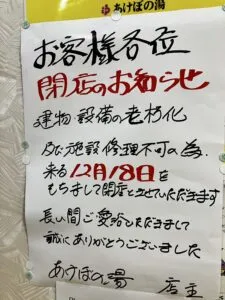 あけぼの湯
お客様各位
閉店のお知らせ
建物設備の老朽化
及び施設修理不可の為、
来る12月18日を
もちまして閉店とさせていただきます
長い間ご愛顧いただきまして
誠にありがとうございました
あけぼの湯 店主